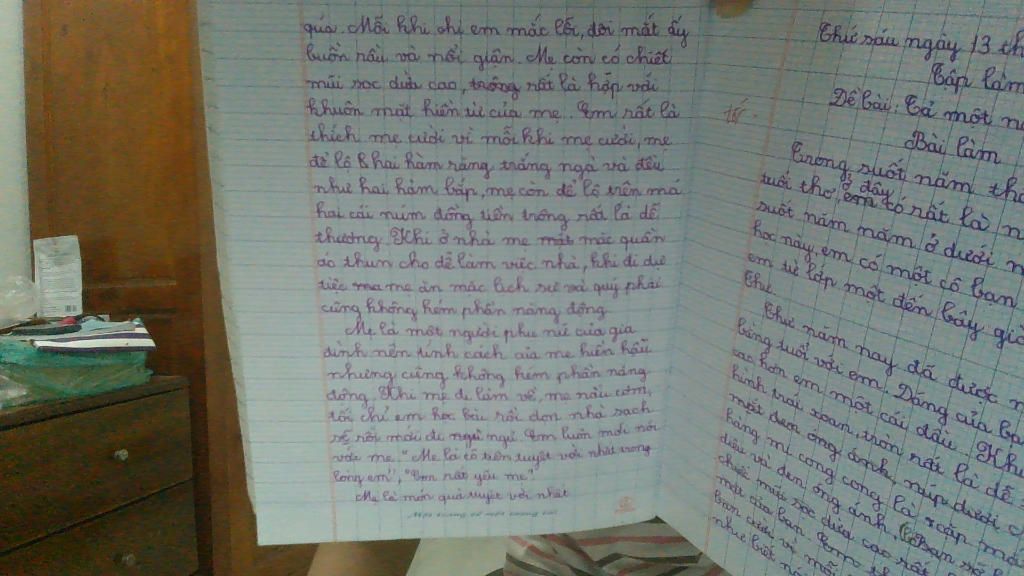 quá. Mỗi khi chị em mắc lỗi, đôi mắt ấy
buồn rầu và nổi giận. Mẹ còn có chiếc
mũi sọc dừa cao, trông rất là hợp với
khuôn mặt hiền từ của mẹ. Em rất là
thích mẹ cười vì mỗi khi mẹ cười, mẹ
để lộ hai hàm răng, trắng ngà và đều
như hai hàm bắp, mẹ còn để lộ trên má
hai cái núm đồng tiền trông rất là dễ
thương. Khi ở nhà mẹ mặc quần
áo thun cho dễ làm việc nhà, khi đi dự
tiệc mẹ ăn mặc lịch sự và quý phái
cũng không kém phần năng động.
Mẹ là một người phụ nữ của gia
đình nên tính cách của mẹ hiền hậu
nhưng cũng không kém phần năng
động. Khi mẹ đi làm về, mẹ nấu cơm,
tối chỉ em học bài rồi dọn nhà sạch
sẽ rồi mới đi ngủ. Em luôn mới nói
với mẹ, "Mẹ là cô tiên tuyệt vời nhất trong
lòng em", "Em rất yêu mẹ".
Mẹ là món quà tuyệt vời nhất
Thứ sáu ngày 13
Tập làm
Đề bài: Tả một
Bài làm
Trong suốt năm
tuổi thơ, ở đây em có rất là
suốt năm năm ở dưới
học này, em có một cô bạn
em từ lớp một đến bây giờ
Thư.
Thư năm nay đã được
bằng tuổi với em. Dáng của
cao hơn em một cái đầu.
hình trái xoan, tròn rất là dễ
mượt đen óng ánh, núp dưới
hàng mi cong cong là cặp
dịu và đen óng ánh. Bạn
chiếc mũi sọc dừa cao rất
mặt của bạn. Em
bạn cười vì mỗi
như biết